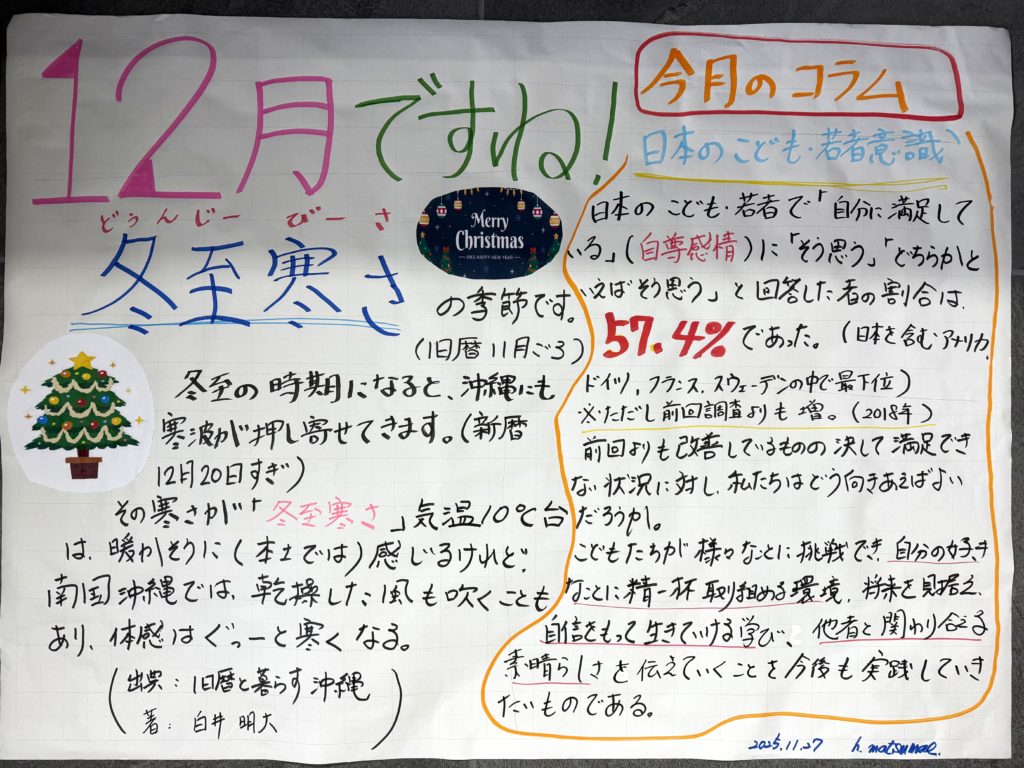 12月ですね!
どぅんじー びーさ
冬至寒さ
Merry
Christmas
AND HAPPY NEW YEAR
の季節です。
(旧暦11月ごろ)
冬至の時期になると、沖縄にも
寒波が押し寄せてきます。(新暦
12月20日すぎ)
その寒さが「冬至寒さ」気温10℃台
は、暖かそうに(本土では)感じるけれど、
南国沖縄では、乾操した風も吹くことも
あり、体感はぐっーと寒くなる。
(出典:旧暦と暮らす沖縄
著:白井明大)
今月のコラム
日本のこども・若者意識
日本のこども・若者で「自分に満足して
いる」(自尊感情)に「そう思う」「どちらかと
いえばそう思う」と回答した者の割合は、
57.4%であった。(日本を含むアメリカ、
ドイツ、フランス、スウェーデンの中で最下位)
※ただし前回調査よりも増。(2018年)
前回よりも改善しているものの決して満足でき
ない状況に対し、私たちはどう向きあえばよい
だろうか。
こどもたちが様々なことに挑戦でき、自分の好き
なことに精一杯取り組める環境、将来を見据え、
自信をもって生きていける学び、他者と関わり合える
素晴らしさを伝えていくことを今後も実践していき
たいものである。
2025.11.27 h.matsumae.